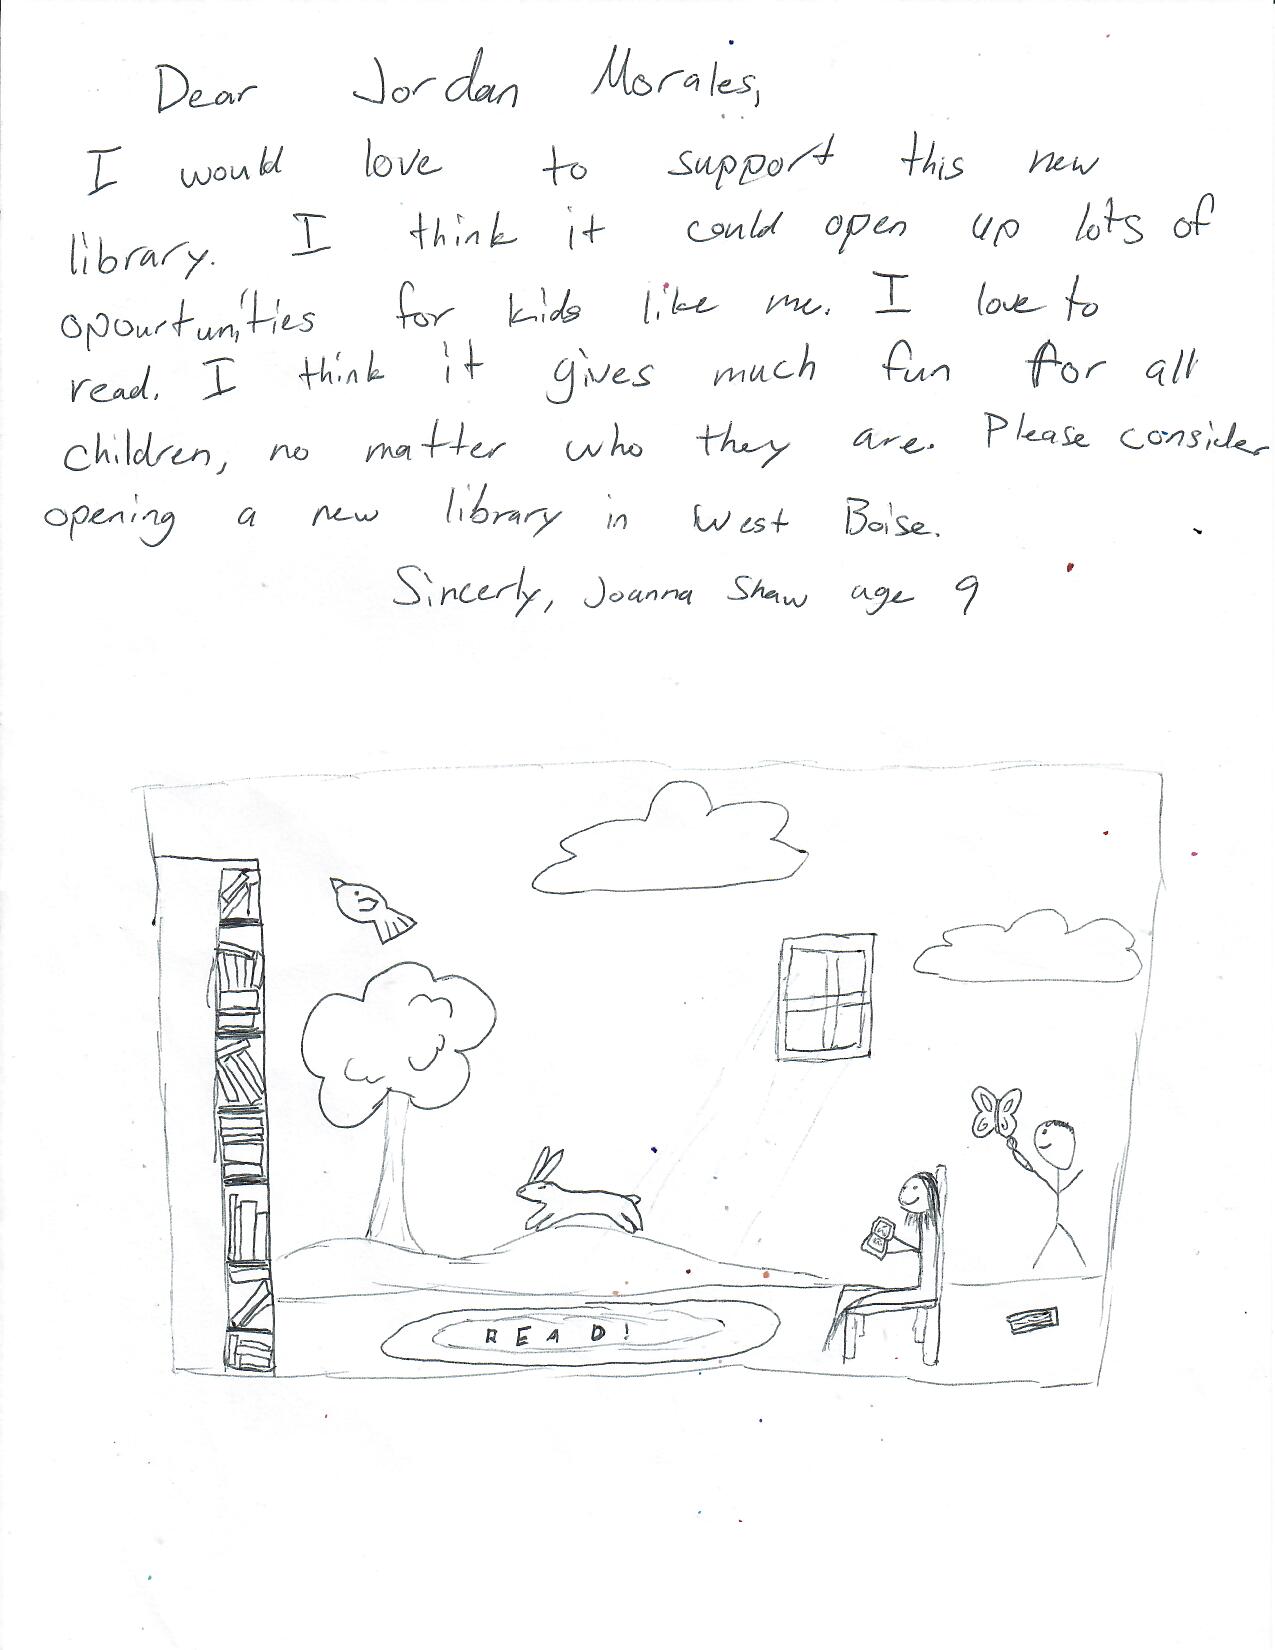 Dear Jordan Morales,
I would love to support this new
library. I think it could open up lots of
opourtunities for kids like me. I love to
read. I think it gives much fun for all
children, no matter who they are. Please consider
opening a new library in West Boise.
Sincerly, Joanna Shaw age 9
READ!